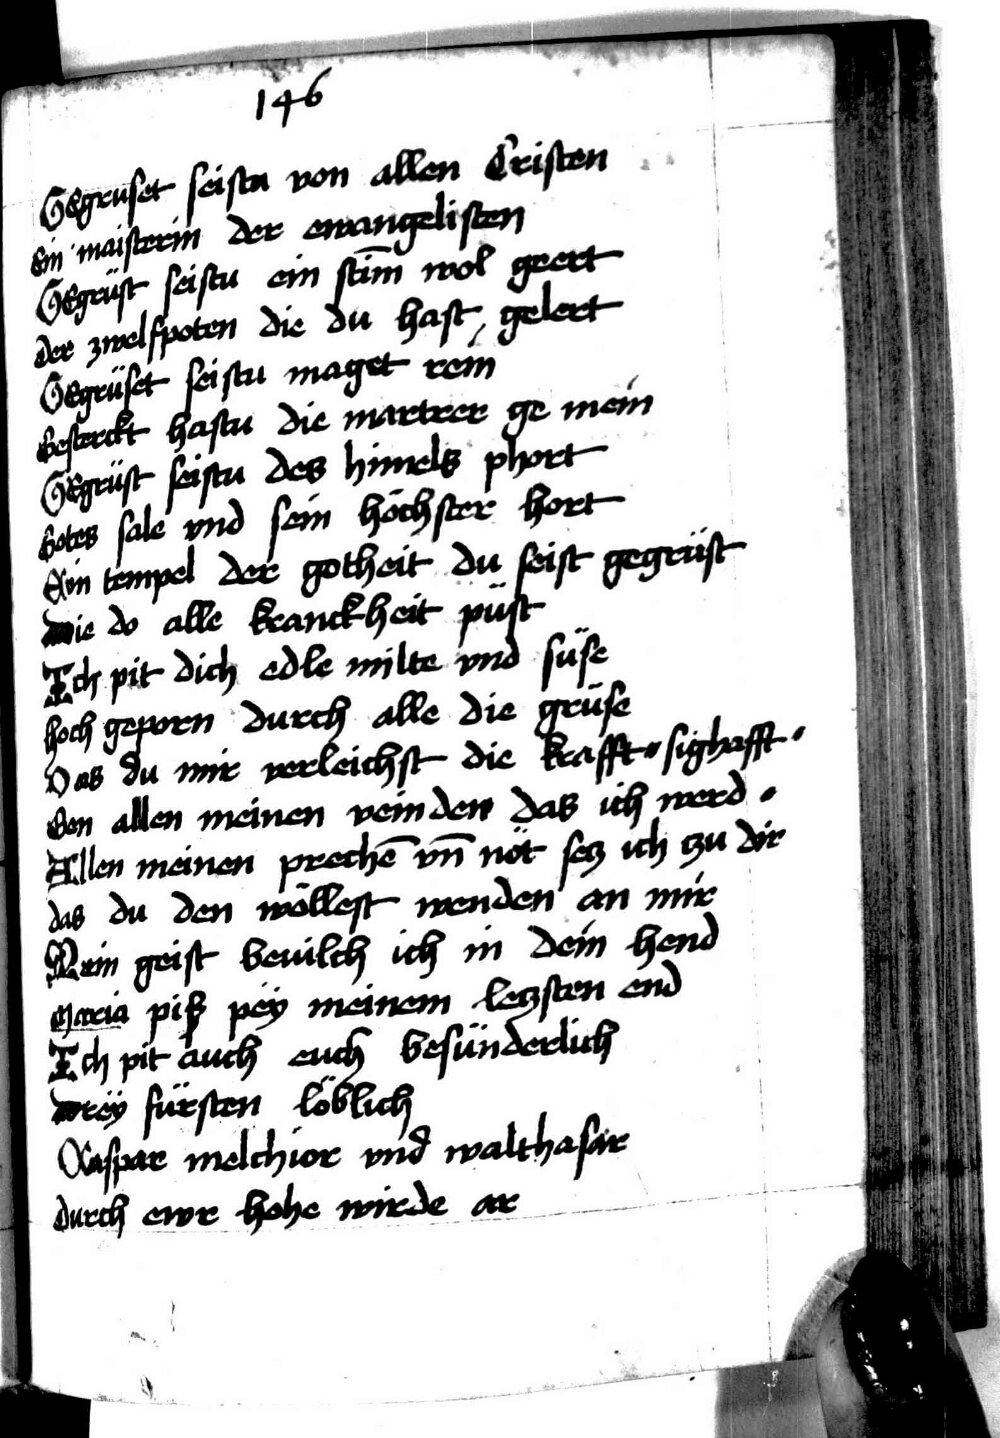 146
GEgruset seistu von allen Cristen
Ein maisterin der ewangelisten
GEgrüst seistu ein stim̄ wol geert
der zwelfpoten die du hast gelert
GEgrüset seistu maget rein
Gesterckt hastu die martrer ge mein
GEgrüst seistu des himels phort
Gotes sale vnd sein höchster hort
Ain tempel der gotheit du seist gegrüst
die do alle kranckheit püst
Ich pit dich edle milte vnd süse
hoch geporn durch alle die grüse
Das du mir verleichst die krafft sighafft
Gen allen meinen veinden das ich werd
Allen meinen prechē vn̄ nöt setz ich tzu dir
das du den wöllest wenden an mir
Mein geist beuilch ich in dein hend
Maria piß pëy meinem letzsten end
Ich pit auch euch besünderlich
drëy fürsten löblich
Kaspar melchior vnd walthasar
durch ewr hohe wirde ar